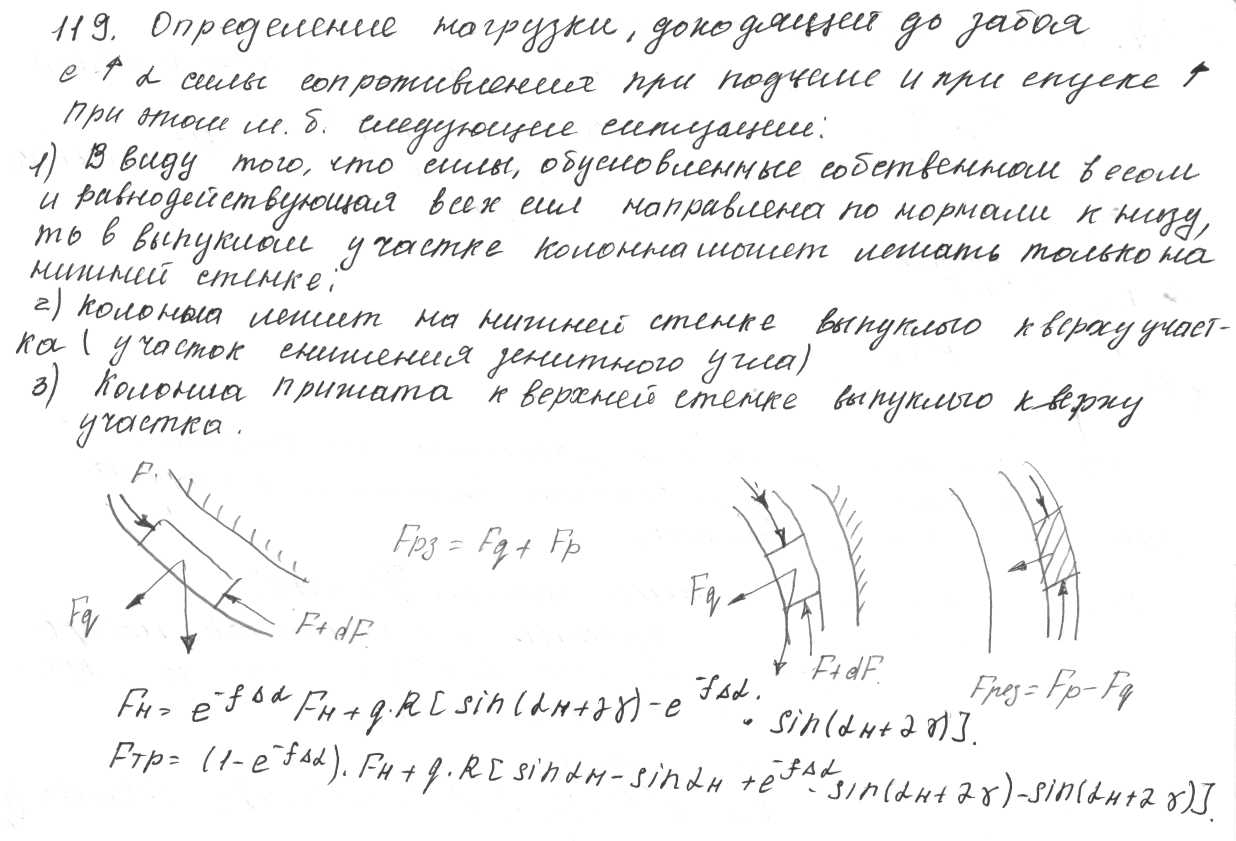 119. Определение нагрузки, доходящей до забоя
с ↑ α силы сопротивления при подъеме и при спуске ↑
При этом м. б. следующие ситуации:
1) В виду того, что силы, обусловленные собственном весом
и равнодействующая всех сил направлена по нормали к низу,
то в выпуклом участке колонна может лежать только на
нижней стенке;
2) колонна лежит на нижней стенке выпуклого к верху участ-
ка ( участок снижения зенитного угла)
3) Колонна прижата к верхней стенке выпуклого к верху
участка.
F.
Fрз = Fq + Fp
Fq
F+dF
Fq
F+dF.
Fрез = Fp – Fq
Fн = e^-fΔα Fн + q·R [ sin(αн+2γ) – e^-fΔα ·
· sin(αн+2γ)].
Fтр = (1-e^-fΔα)· Fн + q·R [ sin αн – sin αн + e^-fΔα · sin(αн+2γ) – sin(αн+2γ)].